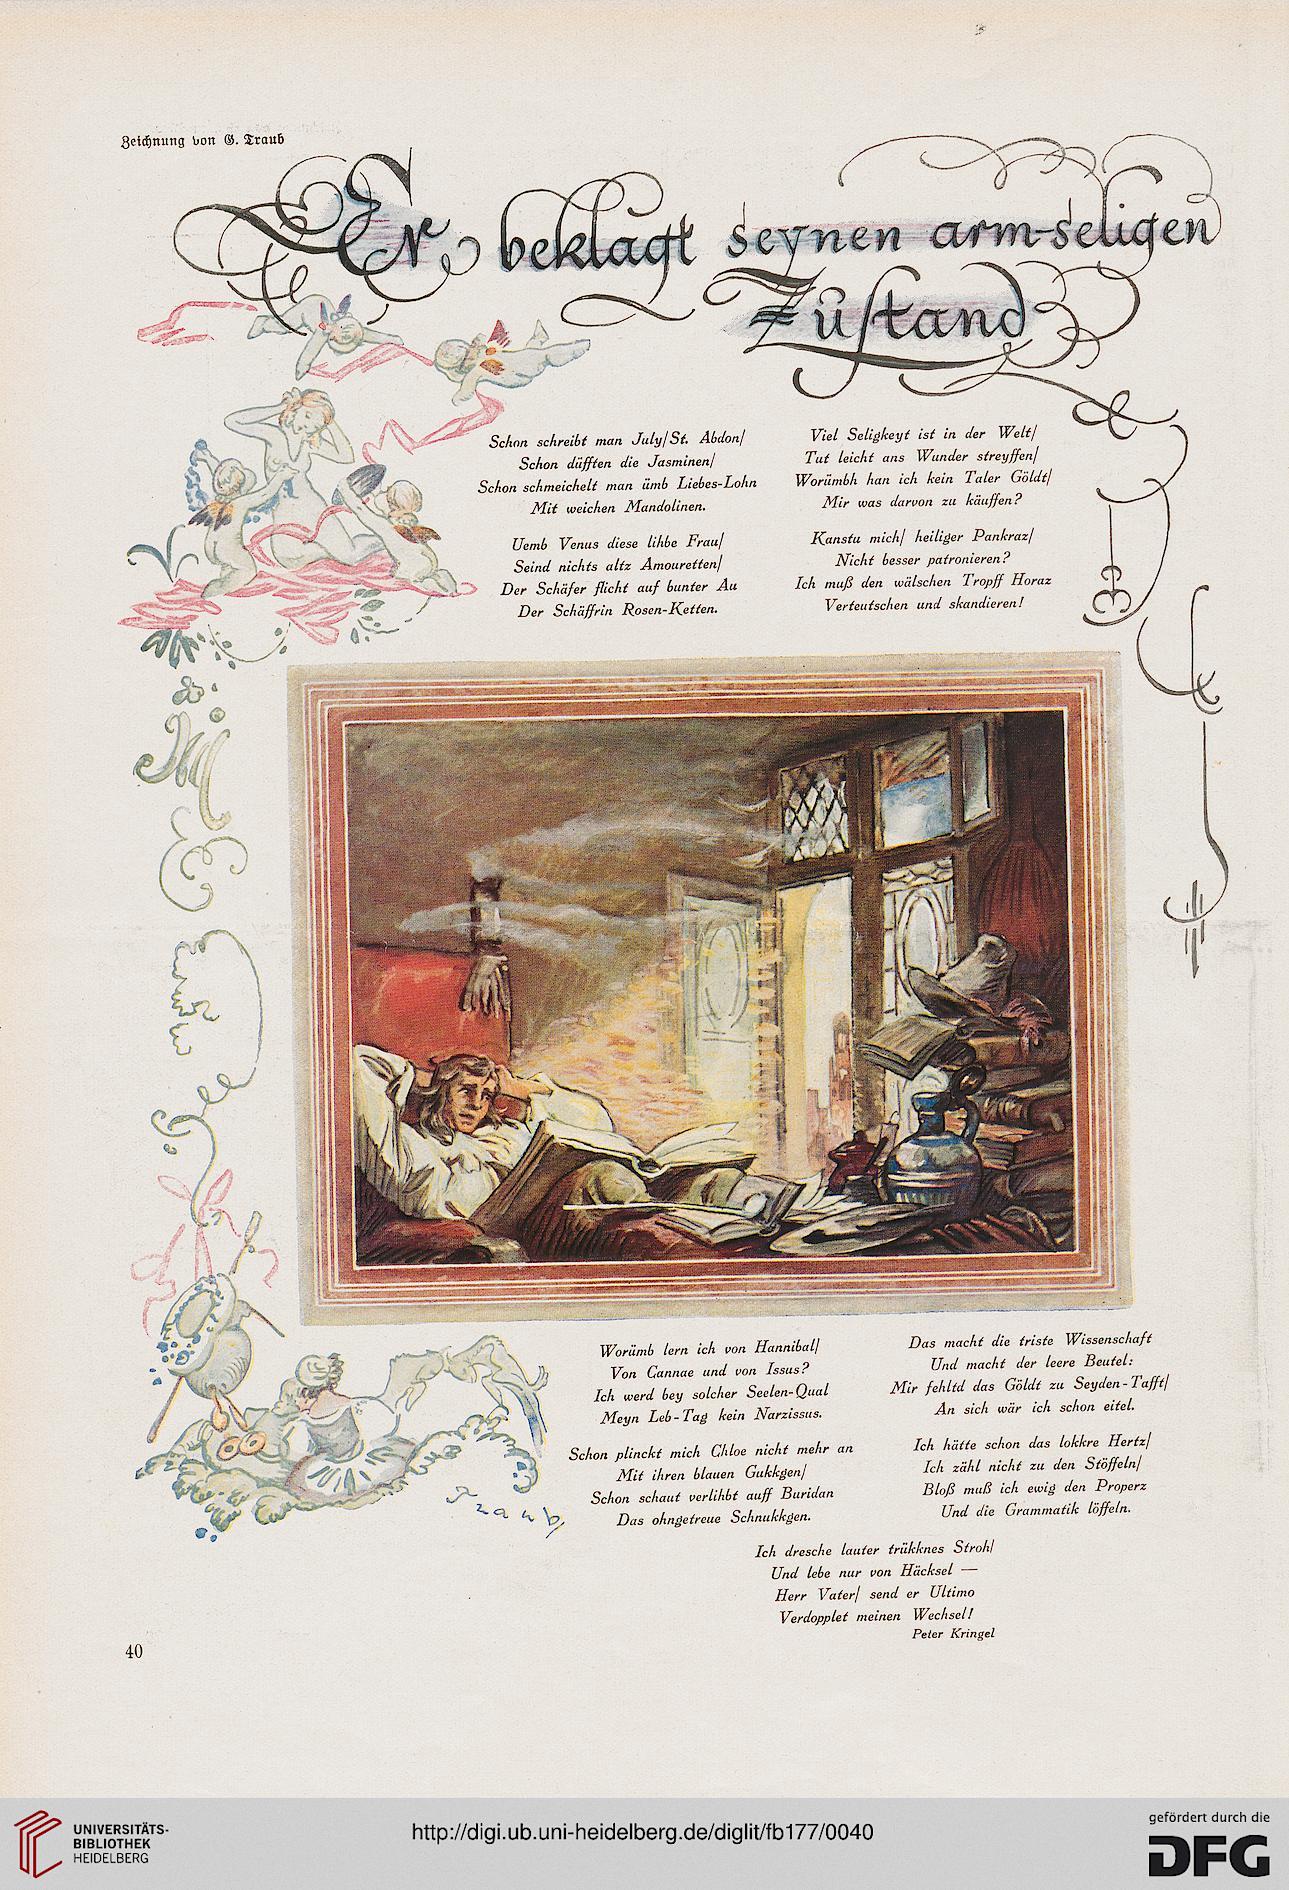 Zeichnung von G. Traub
Er beklagt seynen arm-seligen
Zůstand
Schon schreibt man July/St. Abdon/
Schon düfften die Jasminen/
Schon schmeichelt man ümb Liebes-Lohn
Mit weichen Mandolinen.
Uemb Venus diese lihbe Frau/
Seind nichts altz Amouretten/
Der Schäfer flicht auf bunter Au
Der Schäffrin Rosen-Ketten.
Viel Seligkeyt ist in der Welt/
Tut leicht ans Wunder streyffen/
Worümbh han ich kein Taler Göldt/
Mir was darvon zu käuffen?
Kanstu mich/ heiliger Pankraz/
Nicht besser patronieren?
Ich muß den wälschen Tropff Horaz
Verteutschen und skandieren!
Worümb lern ich von Hannibal/
Von Cannae und von Issus?
Ich werd bey solcher Seelen-Qual
Meyn Leb-Tag kein Narzissus.
Schon plinckt mich Chloe nicht mehr an
Mit ihren blauen Gukkgen/
Schon schaut verlihbt auff Buridan
Das ohngetreue Schnukkgen.
Das macht die triste Wissenschaft
Und macht der leere Beutel:
Mir fehltd das Göldt zu Seyden-Tafft/
An sich wär ich schon eitel.
Ich hätte schon das lokkre Hertz/
Ich zähl nicht zu den Stöffeln/
Bloß muß ich ewig den Properz
Und die Grammatik löffeln.
Ich dresche lauter trükknes Stroh/
Und lebe nur von Häcksel —
Herr Vater/ send er Ultimo
Verdopplet meinen Wechsel!
Peter Kringel
Traub
40
UNIVERSITÄTS-
BIBLIOTHEK
HEIDELBERG
http://digi.ub.uni-heidelberg.de/diglit/fb177/0040
gefördert durch die
DFG